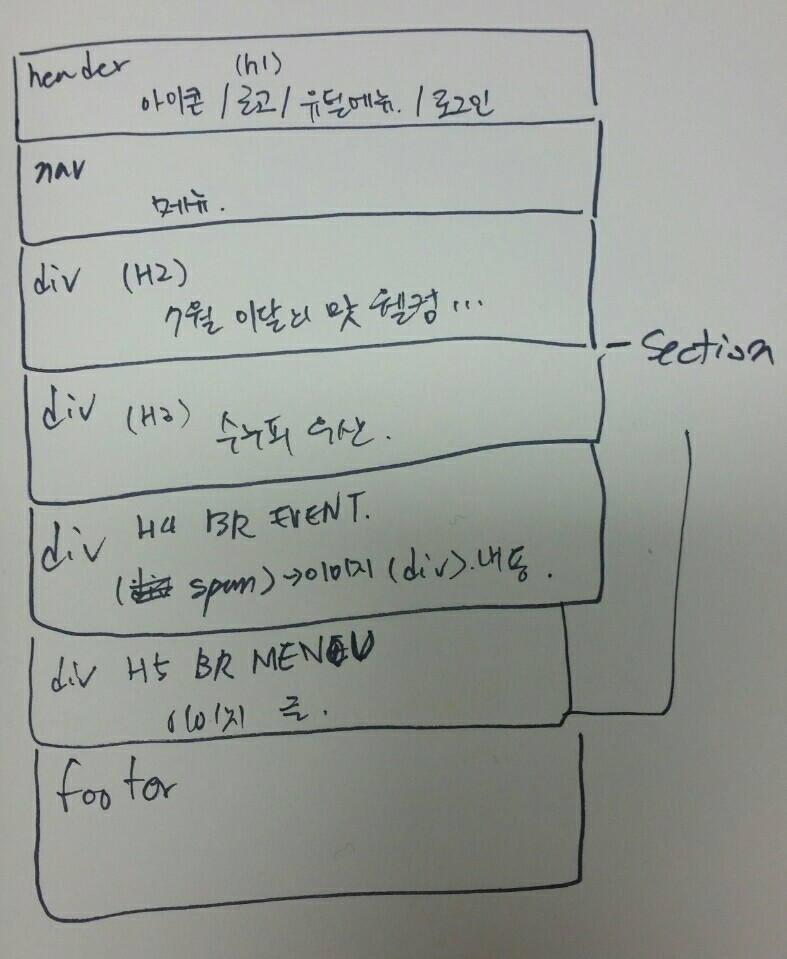 header (h1)
아이콘 / 로고 / 유틸메뉴. / 로그인
nav
메뉴.
div (H2)
7월 이달의 맛 웰컴...
- Section
div (H3) 수누피 우산.
div H4 BR EVENT.
( span) → 이미지 (div). 내용.
div H5 BR MENU
이미지 글.
footer